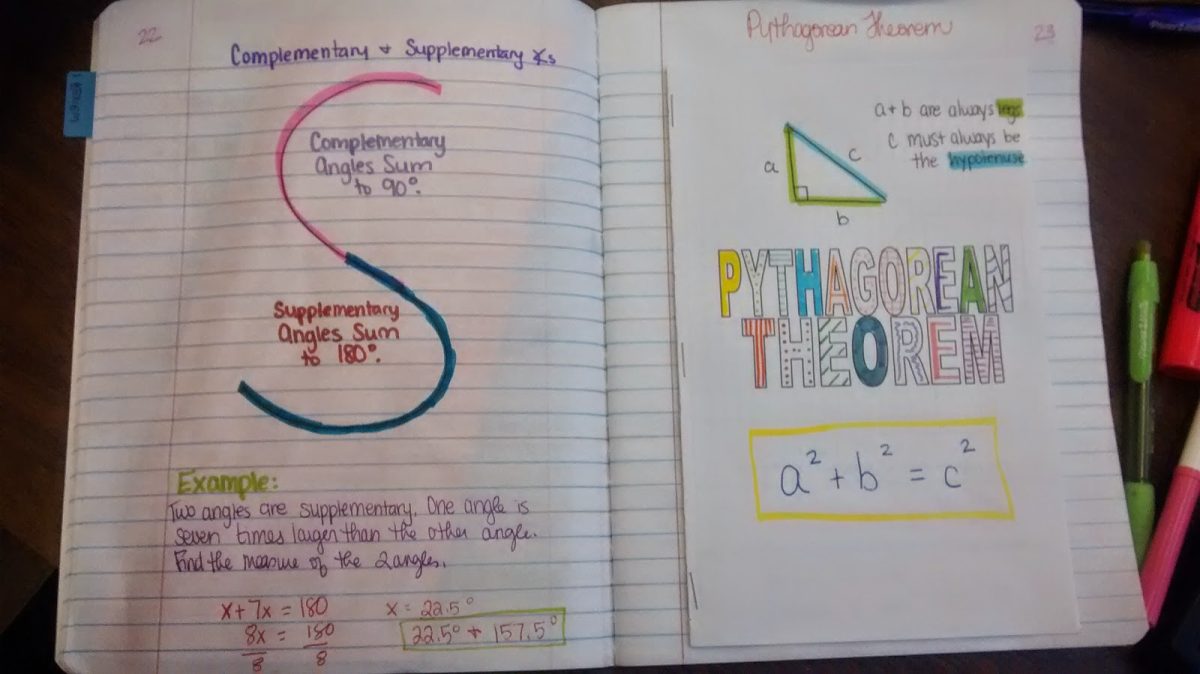 22
Complementary + Supplementary ∡s
Complementary
Angles Sum
to 90°.
Supplementary
Angles Sum
to 180°.
Example:
Two angles are supplementary. One angle is
seven times larger than the other angle.
Find the measure of the 2 angles.
x + 7x = 180
8x = 180
8 8
x = 22.5°
22.5° + 157.5°
Pythagorean Theorem
23
a + b are always legs
c must always be
the hypotenuse
a
c
b
PYTHAGOREAN
THEOREM
a² + b² = c²